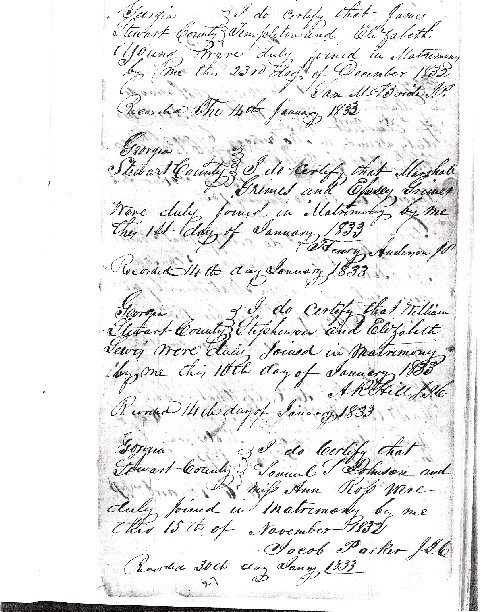 Georgia } I do certify that James
Stewart County } Templeton and Elizabeth
Young Were duly joined in Matrimony
by me this 23rd day of December 1832
Sam McBride JP
Recorded The 14th January 1833
Georgia
Stewart County } I do Certify that Marshall
Grimes and Grimes
Were duly Joined in Matrimony by me
this 1st day of January 1833
Henry Anderson JP
Recorded 14th day January 1833
Georgia } I do certify that William
Stewart County } Stephenson and Elizabeth
Lewis were duly Joined in matrimony
by me this 10th day of January 1833
Hill
Recorded 14th day of January 1833
Georgia } I do Certify that
Stewart County } Samuel Johnson and
miss Ann Ross were
duly joined in matrimony by me
this 15th of November 1832
Jacob Parker
Recorded 30th day Jany 1833